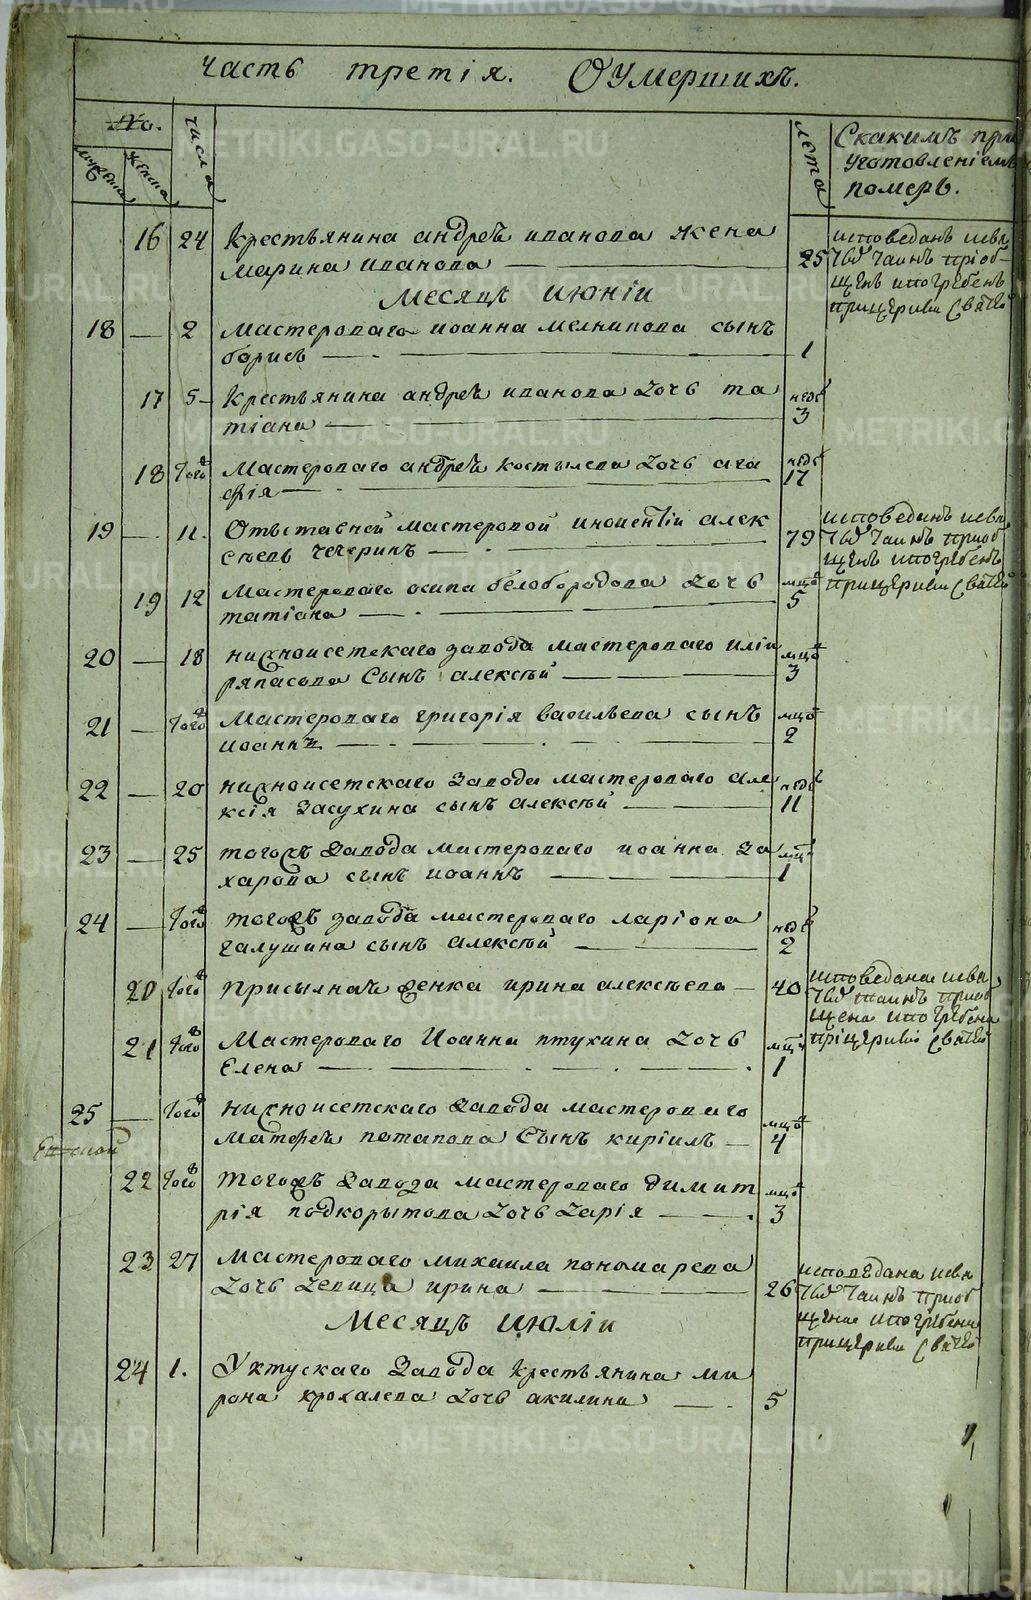 часть третія. О умерших.
№.
мужеска
женска
числа
лета
С каким при
уготовленіем
померъ.
16 24 Крестьянина андрея иванова жена
марина иванова — 25
исповеданъ исвя
тых таинъ пріоб-
щенъ ипогребенъ
прицеркви святой
Месяцъ июніи
18 — 2 мастероваго иоанна мелникова сынъ
борисъ — 1
17 5 Крестьянина андрея иванова дочь та
тіана — недѣ 3
18 того Мастероваго андрея костылева дочь ага
фія — недѣ 17
19 — 11. Отъставней мастеровой инокентіи алек
сѣевъ чечеринъ — 79
исповеданъ исвя
тых таинъ приоб
щенъ ипогребенъ
прицеркви святой
19 12 Мастероваго осипа белобородова дочь
татіана — мцов 5
20 — 18 нижноисетскаго завода мастероваго иліи
ряпасова Сынъ алексѣй — мцов 3
21 — того Мастероваго григорія васильева сынъ
иоаннъ — мцов 2
22 — 20 нижноисетскаго завода мастероваго але
ксія засухина сынъ алексѣй — недѣ 11
23 — 25 тогожъ завода мастероваго иоанна за
харова сынъ иоаннъ — мцъ 1
24 — того тогожъ завода мастероваго ларіона
галушина сынъ алексѣй — недѣ 2
20 того присылная женка ирина алексѣева — 40
исповедана исвя
тых таинъ приоб
щена ипогребена
пріцеркві святой
21 того Мастероваго Иоанна птухина дочь
Елена — мцъ 1
25 — того нижноисетскаго завода мастероваго
матфея потапова Сынъ кирілъ — мцов 4
22 того тогожъ завода мастероваго димит
рія подкорытова дочь дарія — мцов 3
23 27 мастероваго михаила пономарева
дочь девица ирина — 26
исповедана исвя
тых таинъ приоб
щена ипогребена
прицеркви святой
Месяцъ июліи
24 1. Уктускаго завода крестьянина ми
рона крохалева дочь акилина — 5
METRIKI.GASO-URAL.RU